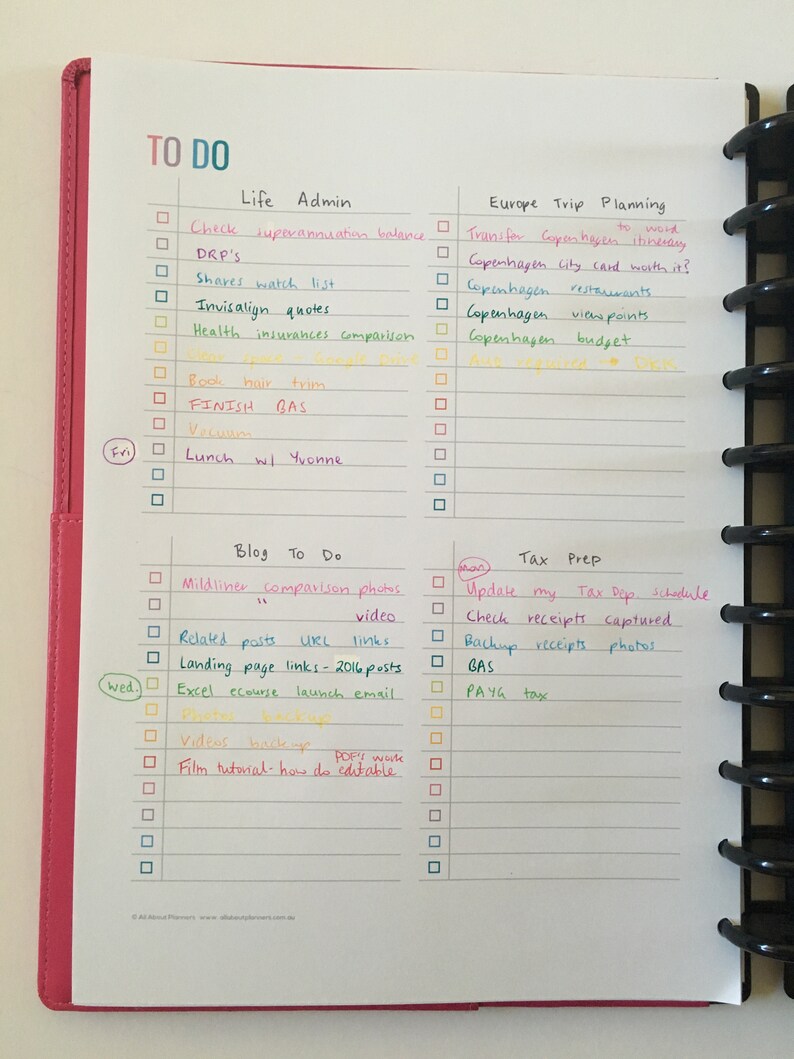 TO DO
Life Admin
Check superannuation balance
DRP's
Shares watch list
Invisalign quotes
Health insurances comparison
Clear space - Google Drive
Book hair trim
FINISH BAS
Vacuum
Fri
Lunch w/ Yvonne
Europe Trip Planning
to word
Transfer Copenhagen itinerary
Copenhagen city card worth it?
Copenhagen restaurants
Copenhagen viewpoints
Copenhagen budget
required →
Blog To Do
Mildliner comparison photos
" video
Related posts URL links
Landing page links - 2016 posts
Wed.
Excel ecourse launch email
Photos backup
Videos backup
PDF's work
Film tutorial - how do editable
Tax Prep
Mon.
Update my Tax Dep. schedule
Check receipts captured
Backup receipts photos
BAS
PAYG tax
© All About Planners www. allaboutplanners.com.au